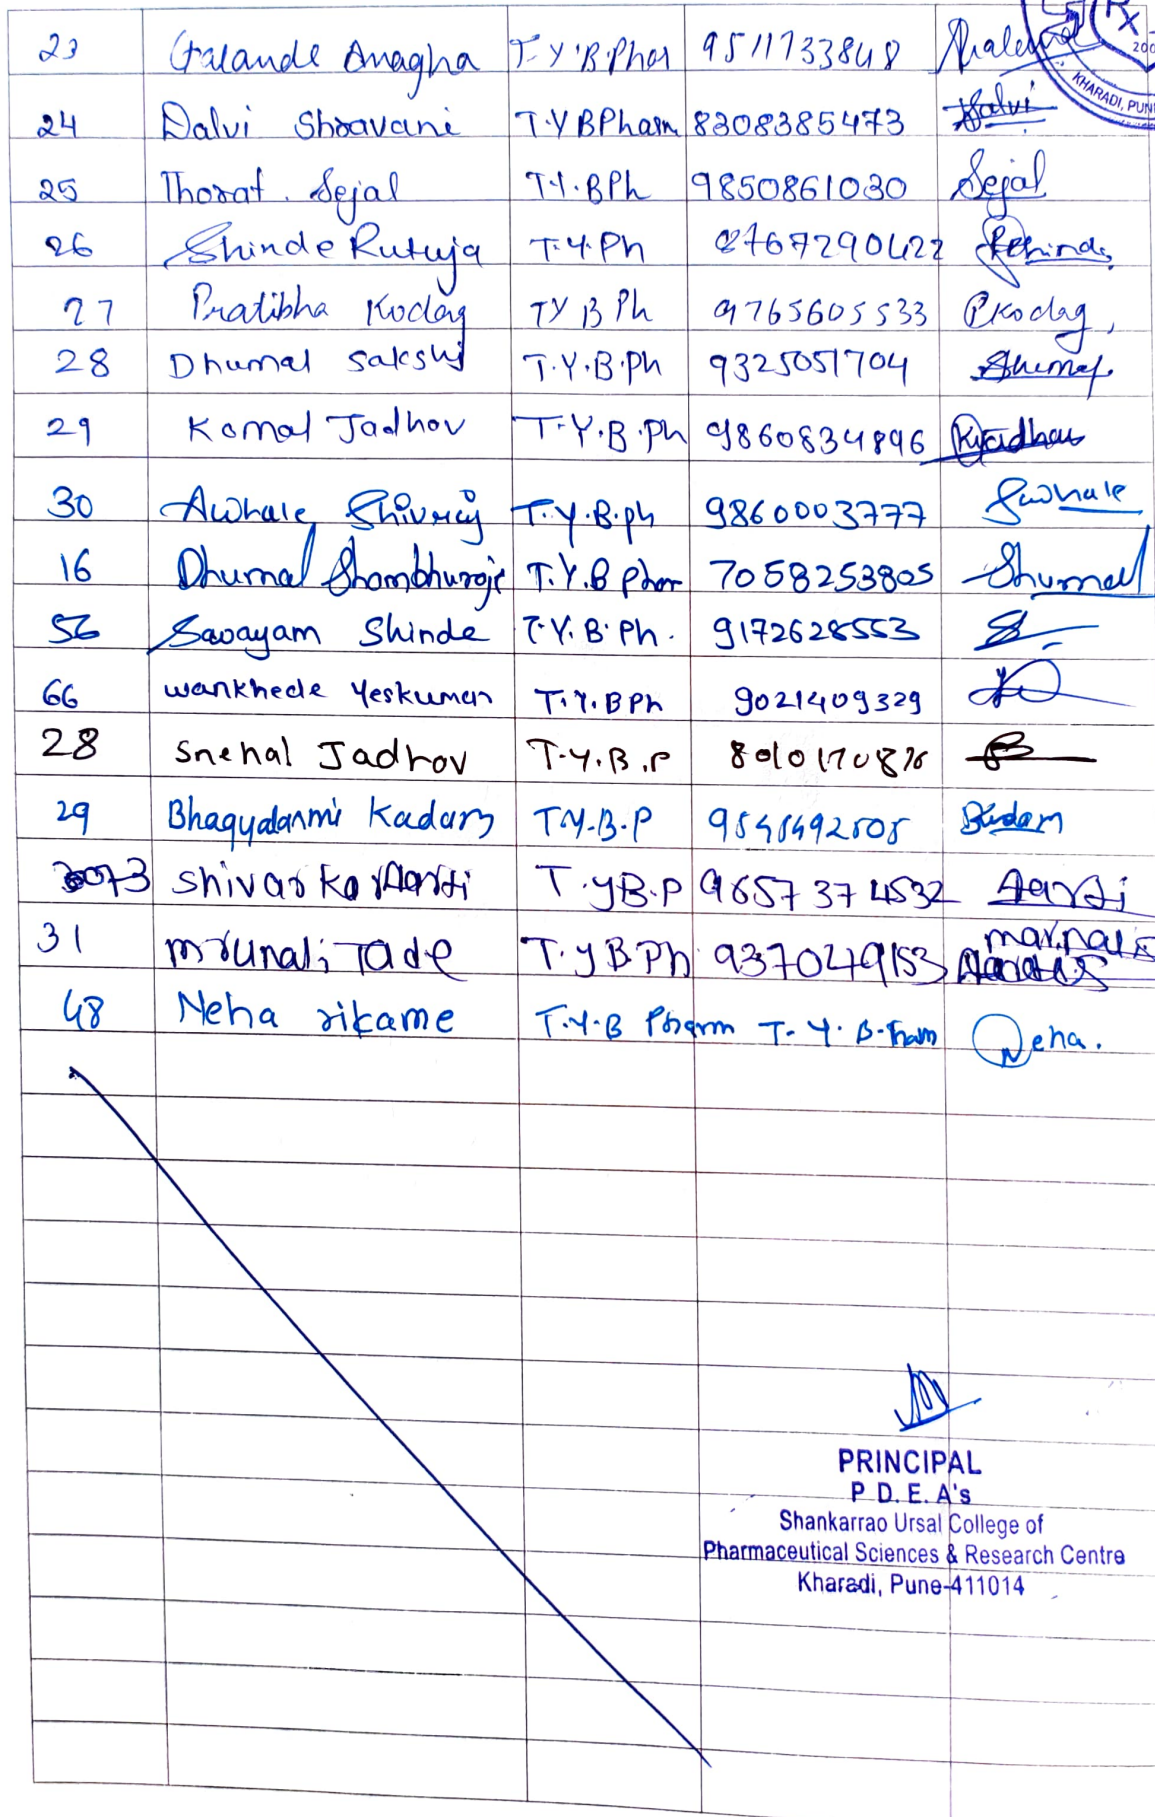 23 Galande Anagha T.Y.B.Phar 9511733848
KHARADI, PUN
24 Dalvi Shravani T.Y BPharm 8308385473 Dalvi
25 Thorat. Sejal T.Y.BPh 9850861030 Sejal
26 Shinde Rutuja T.Y.Ph 8767290422 RShinde
27 Pratibha Kodag TY B Ph 9765605533 PKodag,
28 Dhumal Sakshi T.Y.B.Ph 9325051704 Dhumal
29 Komal Jadhav T.Y.B.Ph 9860834896 KJadhav
30 Awhale Shivraj T.Y.B.ph 9860003777 Sawhale
16 Dhumal Shambhuraje T.Y.B phar 7058253805 Dhumal
56 Savayam Shinde T.Y.B.Ph. 9172628553
66 wankhede Yeskumar T.Y.BPh 9021409329
28 Snehal Jadhav T.Y.B.P 8010170876
29 Kadam T.Y.B.P 9545492505 Bkadam
73 Shivarkar Aarti T.YB.P 9657374532 Aarti
31 mrunali Tade T.YBPh 9370249153
48 Neha rikame T.Y.B Pharm T.Y.B.Pham Neha.
PRINCIPAL
P.D.E.A's
Shankarrao Ursal College of
Pharmaceutical Sciences & Research Centre
Kharadi, Pune-411014